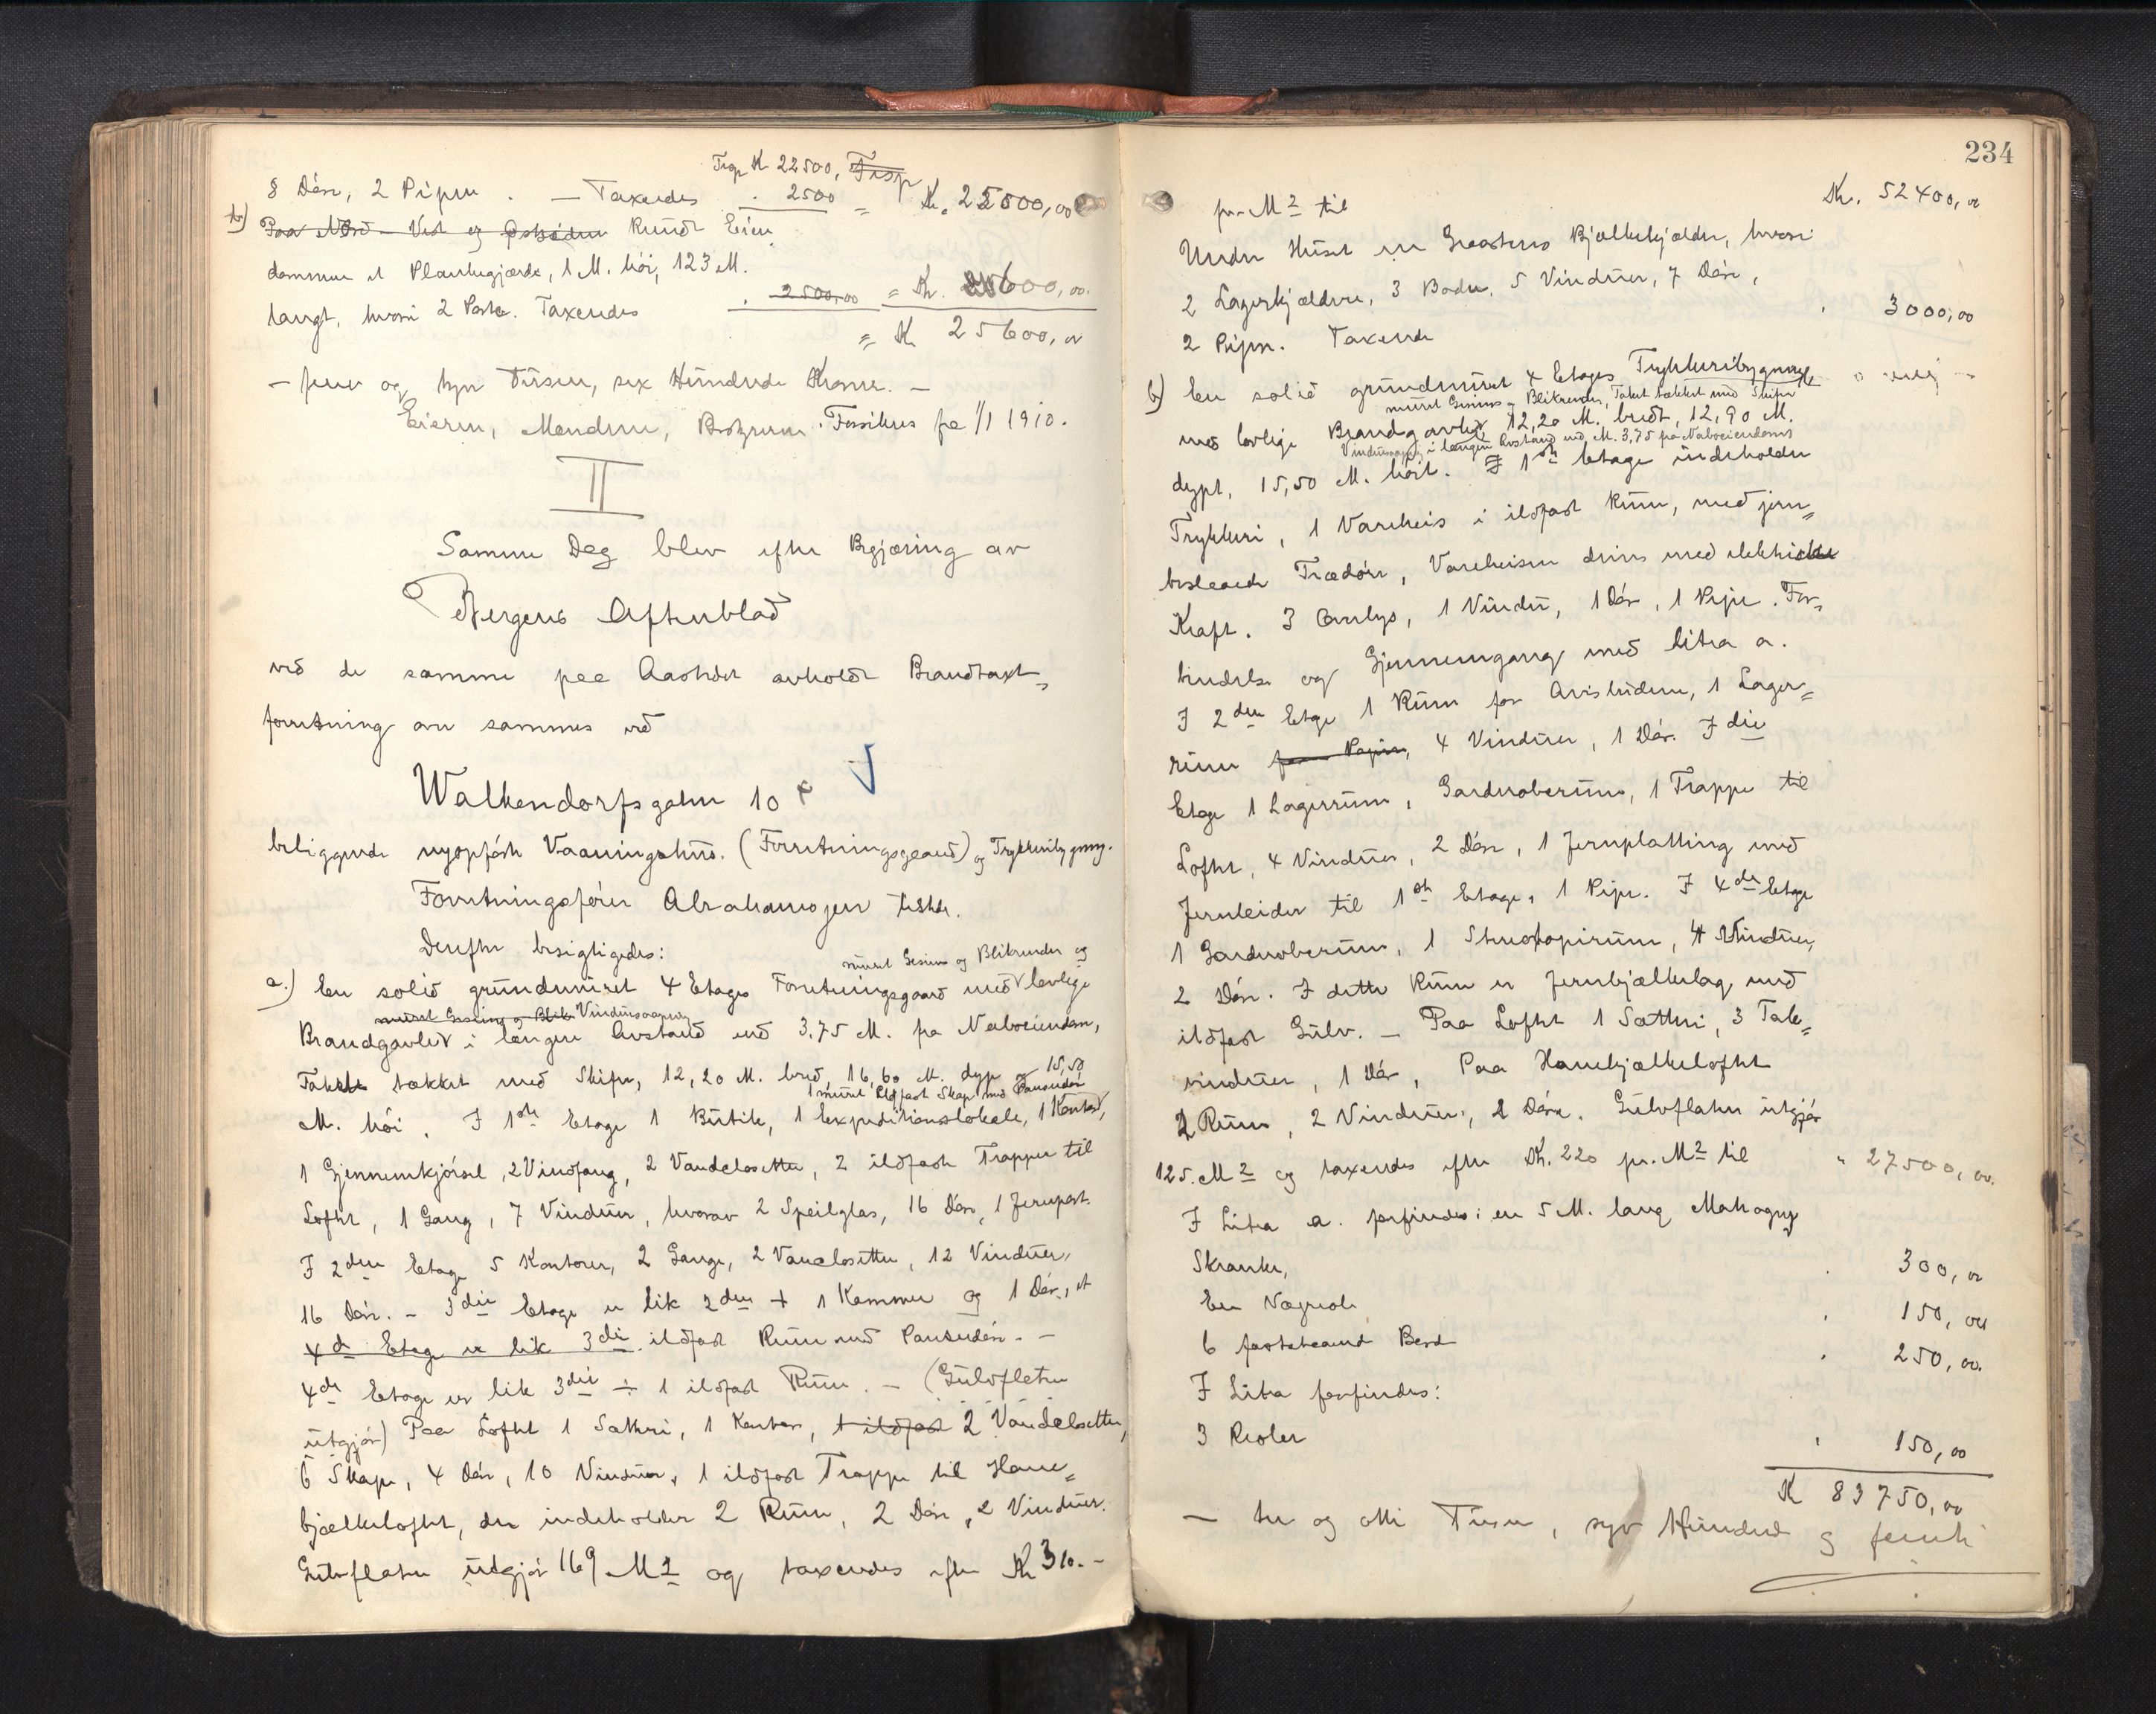 Trap K 22500, Trap
8 Döre, 2 Piper. — Taxeredes . 2500 = Kr. 25500,00
b) Paa Nord - Vest og Rundt Eien
dommen et Plankegjærde, 1 M. höi, 123 M.
langt, hvori 2 Porte. Taxeredes . 2500,00 = Kr. 600,00.
= K 25600,00
— fem og tyve Tusen, sex Hundrede Kroner. —
Eieren, Mændene, Bestyreren. Forsikres fra 1/1 1910.
II
Samme Dag blev efter Begjæring av
Bergens Aftenblad
ved de samme paa Aastedet avholdt Brandtaxt=
forretning over sammes ved
Walkendorfsgaten 10
beliggende nyopført Vaaningshus. (Forretningsgaard) og Trykkeribygning.
Forretningsfører Abrahamsen tilstede.
Derefter besigtigedes:
muret Gesims og Blikrender og
a.) En solid grundmuret 4 Etages Forretningsgaard med lovlige
muret Gesims og Blik Vinduesaapning
Brandgavler i længere Avstand end 3,75 M. fra Naboeiendom,
Taket tækket med Skifer, 12,20 M. bred, 16,60 M. dyp og 15,50
1 muret Ildfast Skap med Panserdör
M. höi. I 1ste Etage 1 Butik, 1 Expeditionslokale, 1 Kontor,
1 Gjennemkjörsel, 2 Vindfang, 2 Vandclosetter, 2 ildfaste Trapper til
Loftet, 1 Gang, 7 Vinduer, hvorav 2 Speilglas, 16 Döre, 1 Jernport.
I 2den Etage 5 Kontorer, 2 Gange, 2 Vanclosetter, 12 Vinduer,
16 Döre. - 3die Etage er lik 2den + 1 Kammer og 1 Dör, et
4de Etage er lik 3die. ildfast Rum med Panserdör. —
4de Etage er lik 3die ÷ 1 ildfast Rum. — (Gulvflaten
utgjör) Paa Loftet 1 Satteri, 1 Kontor, 1 ildfast 2 Vandclosetter,
6 Skape, 4 Döre, 10 Vinduer, 1 ildfast Trappe til Hane=
bjælkeloftet, der indeholder 2 Rum, 2 Döre, 2 Vinduer.
Gulvflaten utgjör 169 M2 og taxeredes efter Kr 310.-
234
pr. M2 til Kr. 52400,00
Under Huset er Graastens Bjælkekjælder, hvori
2 Lagerkjældere, 3 Boder, 5 Vinduer, 7 Döre,
2 Piper. Taxerede . 3000,00
b) En solid grundmuret 4 Etages Trykkeribygning
muret Gesims og Blikrender, Taket tækket med Skifer
med lovlige Brandgavler, 12,20 M. bredt, 12,90 M.
Vinduesaapning i længere Avstand end M. 3,75 fra Naboeiendoms
dypt, 15,50 M. höit. I 1ste Etage indeholder
Trykkeri, 1 Vareheis i ildfast Rum, med jern=
beslaaede Trædöre, Vareheisen drives med elektriske
Kraft. 3 Overlys, 1 Vindu, 1 Dör, 1 Pipe. For=
bindelse og Gjennemgang med litra a.
I 2den Etage 1 Rum for Avisbudene, 1 Lager=
rum for Papir, 4 Vinduer, 1 Dör. I 3die
Etage 1 Lagerrum, Garderoberum, 1 Trappe til
Loftet, 4 Vinduer, 2 Döre, 1 Jernplatting med
Jernleider til 1ste Etage, 1 Pipe. I 4de Etage
1 Garderoberum, 1 Stereotopirum, 4 Vinduer,
2 Döre. I dette Rum er Jernbjælkelag med
ildfast Gulv. — Paa Loftet 1 Sætteri, 3 Tak=
vinduer, 1 Dör, Paa Hanebjælkeloftet
2 Rum, 2 Vinduer, 2 Döre. Gulvflaten utgjör
125. M2 og taxeredes efter Kr. 220 pr. M2 til " 27500,00.
I Litra a. forfindes: en 5 M. lang Mahogny
Skranke, . 300,00
En Vægreol . 150,00
6 faststaaende Bord . 250,00.
I Litra forfindes:
3 Reoler . 150,00
K 83750,00
— tre og otti Tusen, syv Hundrede og femti